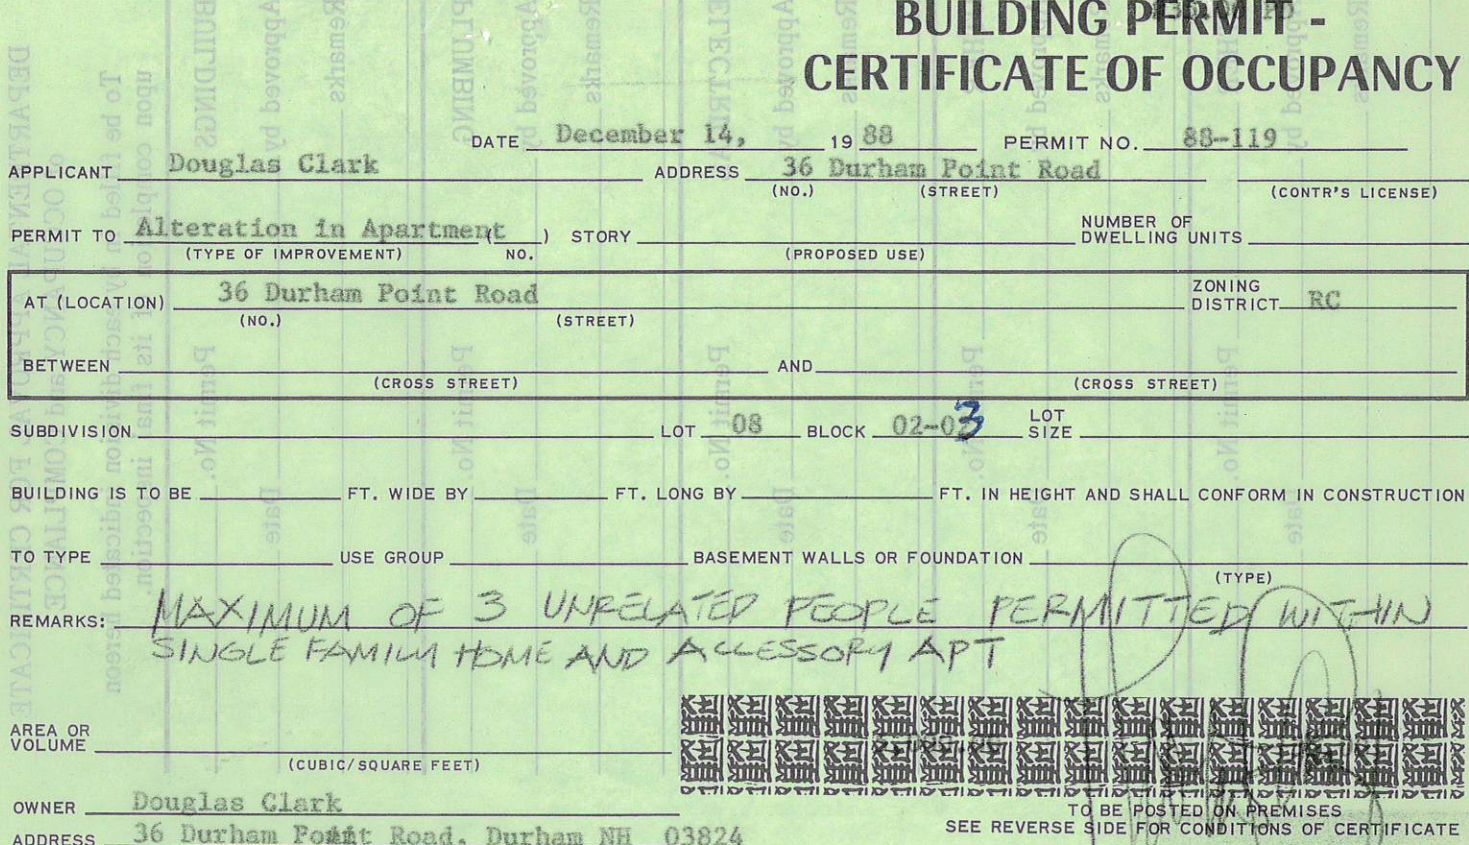 BUILDING PERMIT -
CERTIFICATE OF OCCUPANCY
DATE December 14, 19 88 PERMIT NO. 88-119
APPLICANT Douglas Clark ADDRESS 36 Durham Point Road
(NO.) (STREET) (CONTR'S LICENSE)
PERMIT TO Alteration in Apartment ( ) STORY NUMBER OF DWELLING UNITS
(TYPE OF IMPROVEMENT) NO. (PROPOSED USE)
AT (LOCATION) 36 Durham Point Road ZONING DISTRICT RC
(NO.) (STREET)
BETWEEN AND
(CROSS STREET) (CROSS STREET)
SUBDIVISION LOT 08 BLOCK 02-03 LOT SIZE
BUILDING IS TO BE FT. WIDE BY FT. LONG BY FT. IN HEIGHT AND SHALL CONFORM IN CONSTRUCTION
TO TYPE USE GROUP BASEMENT WALLS OR FOUNDATION
(TYPE)
REMARKS: MAXIMUM OF 3 UNRELATED PEOPLE PERMITTED WITHIN
SINGLE FAMILY HOME AND ACCESSORY APT
AREA OR
VOLUME
(CUBIC/SQUARE FEET)
OWNER Douglas Clark
TO BE POSTED ON PREMISES
SEE REVERSE SIDE FOR CONDITIONS OF CERTIFICATE
ADDRESS 36 Durham Point Road, Durham NH 03824